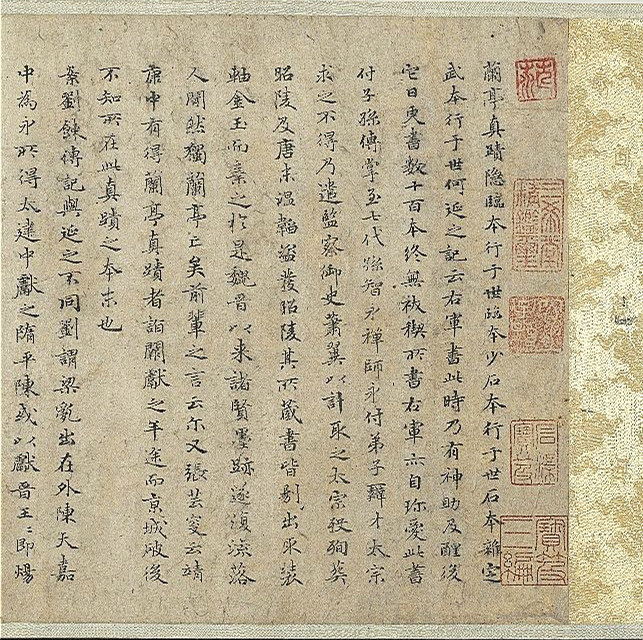 三希堂精鑑璽
石渠寶笈
寶笈三編
蘭亭真蹟隱臨本行于世臨本少石本行于世石本雜定
武本行于世何延之記云右軍書此時乃有神助及醒後
它日更書數十百本終無祓禊所書右軍亦自珍愛此書
付子孫傳掌至七代孫智永禪師永付弟子辯才太宗
求之不得乃遣監察御史蕭翼以計取之太宗歿殉葬
昭陵及唐末溫韜盜發昭陵其所藏書皆剔出取裝
軸金玉而棄之於是魏晉以來諸賢墨跡遂復流落
人間然獨蘭亭亡矣前輩之言云尔又張芸叟云靖
康中有得蘭亭真蹟者詣闕獻之半途而京城破後
不知所在此真蹟之本末也
案劉餗傳記與延之不同劉謂梁亂出在外陳天嘉
中為永所得太建中獻之隋平陳或以獻晉王〻即煬